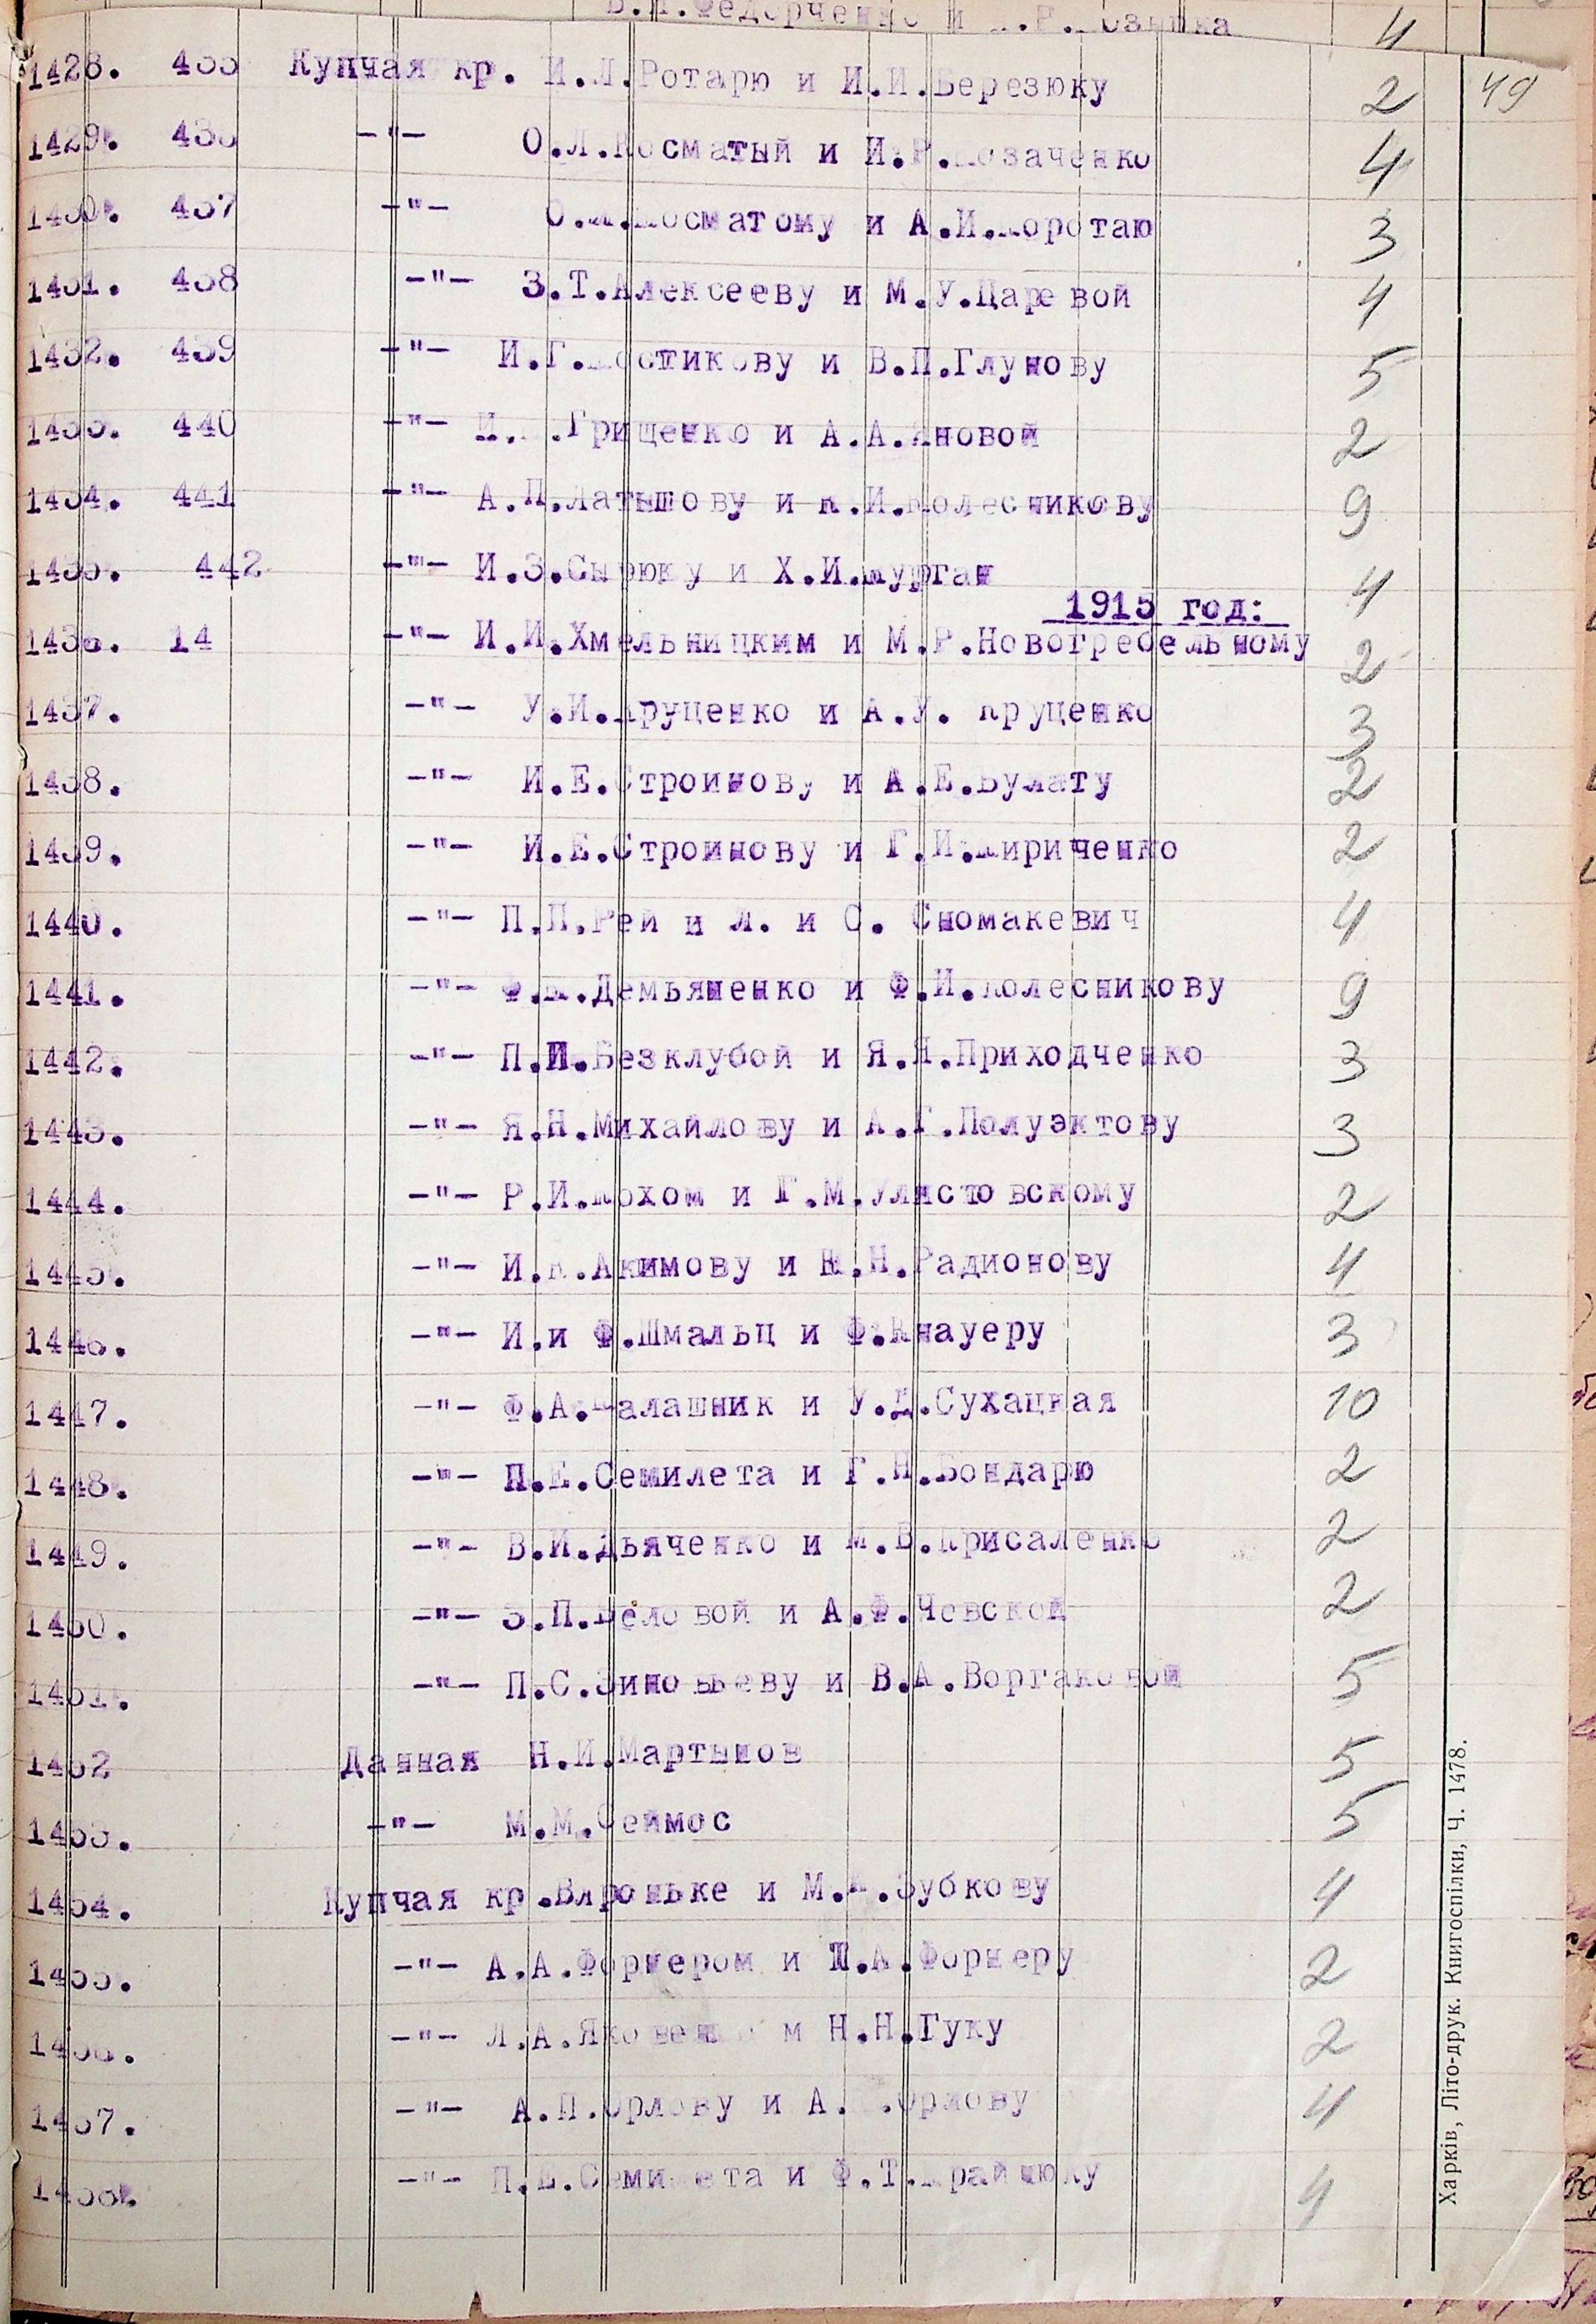 В.И.Федорченко и 4
1428. 435 Купчая кр. И.Л.Ротарю и И.И.Березюку 2 49
1429. 436 -"- О.Л.Косматый и И.Р.Козаченко 4
1430. 437 -"- О.Л.Косматому и А.И.Коротаю 3
1431. 438 -"- З.Т.Алексееву и М.У.Царевой 4
1432. 439 -"- И.Г.Костикову и В.П.Глунову 5
1433. 440 -"- Грищенко и А.А.Яновой 2
1434. 441 -"- А.П.Латышову и К.И.Колесникову 9
1435. 442 -"- И.З.Сырюку и Х.И.Шурган 4
1915 год:
1436. 14 -"- И.И.Хмельницким и М.Р.Новогребельному 2
1437. -"- У.И.Круценко и А.У. Круценко 3
1438. -"- И.Е.Строинову и А.Е.Булату 2
1439. -"- И.Е.Строинову и Г.И.Кириченко 2
1440. -"- П.П.Рей и Л. и С. Сномакевич 4
1441. -"- Демьяненко и Ф.И.Колесникову 9
1442. -"- П.И.Безклубой и Я.Я.Приходченко 3
1443. -"- Я.Н.Михайлову и А.Г.Полуэктову 3
1444. -"- Р.И.Кохом и Г.М.Улистовскому 2
1445. -"- И.К.Акимову и Н.Радионову 4
1446. -"- И.и Ф.Шмальц и Ф.Кнауеру 3
1447. -"- Ф.А.Балашник и У.Д.Сухацкая 10
1448. -"- П.Е.Семилета и Г.Н.Бондарю 2
1449. -"- В.И.Дьяченко и М.В.Крисаленко 2
1450. -"- З.П.Беловой и А.Ф.Чевской 2
1451. -"- П.С.Зиновьеву и В.А.Воргаковой 5
1452 Данная Н.И.Мартынов 5
1453. -"- М.М.Сеймос 5
1454. Купчая кр.Вдроньке и Зубкову 4
1455. -"- А.А.Форнером и П.А.Форнеру 2
1456. -"- Л.А.Яковенко м Н.Н.Гуку 2
1457. -"- А.П.Орлову и А. Орлову 4
1458. -"- П.Е.Семилета и Ф.Т.Крайнюку 4
Харків, Літо-друк. Книгоспілки, Ч. 1478.